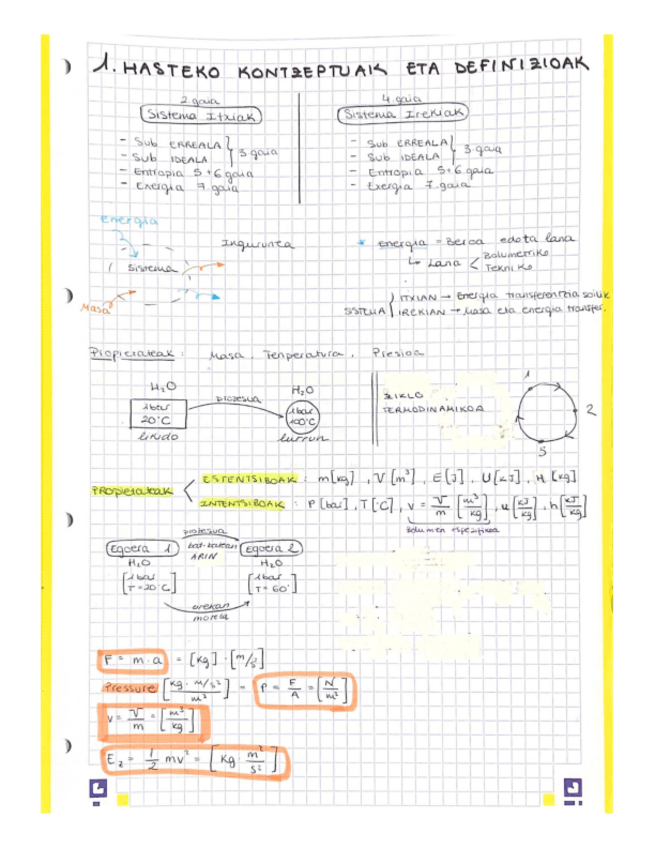 1. HASTEKO KONTZEPTUAK ETA DEFINIZIOAK
2 gaia
Sistema Itxiak
- Sub ERREALA
- Sub IDEALA
3 gaia
- Entropia 5+6 gaia
- Exergia 7. gaia
4. gaia
Sistema Irekiak
- Sub ERREALA
- Sub IDEALA
3. gaia
- Entropia 5+6 gaia
- Exergia 7. gaia
energia
Ingurunea
Sistema
Masa
* energia = Beroa edota lana
↳ Lana < Bolumetriko
Tekniko
SISTEMA { ITXIAN → Energia transferentzia soilik
IREKIAN → Masa eta energia transfer.
Propietateak : Masa, Tenperatura, Presioa
H₂O
1 bar
20°C
likido
prozesua
H₂O
1 bar
100°C
lurrun
ZIKLO
TERMODINAMIKOA
1
2
3
PROPIETATEAK
ESTENTSIBOAK : m[kg], V[m³], E[J], U[kJ], H[kg]
INTENTSIBOAK : P[bar], T[°C], v = V/m [m³/kg], u[kJ/kg], h[kJ/kg]
Bolumen espezifikoa
prozesua
Egoera 1
bat-batean
ARIN
Egoera 2
H₂O
H₂O
[1 bar
T=20°C]
[1 bar
T=60°]
orekan
motela
F = m·a = [kg]·[m/s]
Pressure [kg·m/s²/m²] = P = F/A = [N/m²]
v = V/m = [m³/kg]
E₂ = 1/2 mv² = [kg m²/s²]